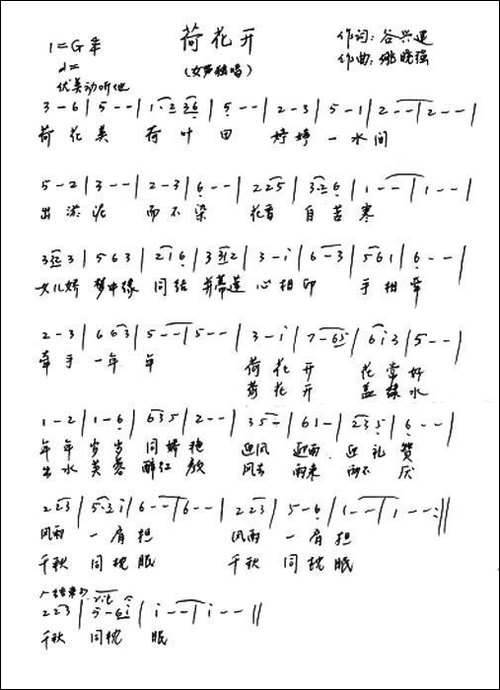 荷花开
(女声独唱)
1=G
♩=
优美动听地
作词:谷兴运
作曲:姚晓强
3 - 6 | 5 - - | 1·2 36 | 5 - - | 2 - 3 | 5 - 1 | 2 - - | 2 - - |
荷花美 荷叶田 婷婷一水间
5 - 2 | 3 - - | 2 - 3 | 6 - - | 2 2 5 | 3·2 6 | 1 - - | 1 - - |
出淤泥 而不染 花香自苦寒
3 52 3 | 5 6 3 | 2 1 6 | 3 312 | 3 - i | 6 - 3 | 5 6 1 | 6 - - |
女儿娇 梦中缘 同结 并蒂莲 心相印 手相牵
2 - 3 | 6 63 | 5 - - | 5 - - | 3 - i | 7 - 65 | 6 i 3 | 5 - - |
牵手一年年 荷花开 花常好
荷花开 盖绿水
1 - 2 | 1 - 6 | 6 3 5 | 2 - - | 3 5 - | 6 1 - | 2 3 5 | 6 - - |
年年岁岁同娇艳 迎风 迎雨 迎礼赞
出水芙蓉醉红颜 风去 雨来 两不厌
2 23 | 5·3 i | 6 - - | 6 - - | 2 23 | 5 - 6 | 1 - - | 1 - - :||
风雨一肩担 风雨一肩担
千秋同枕眠 千秋同枕眠
结束句 rit
2 23 | 5 - 6i | i - - | i - - ||
千秋同枕眠